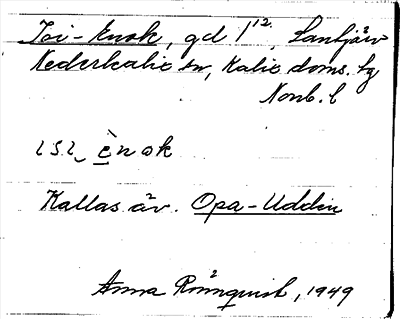 Isi-knok, gd 1/12, Lantjärv
Nederkalix sn, Kalix doms. hg
Nonb. l
ɩsɩ è n o k
Kallas äv. Opa-Udden
Anna Rönnquist, 1949